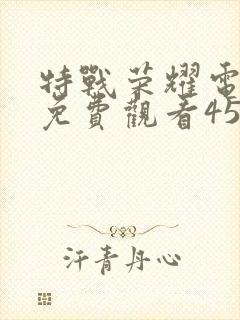 特戰荣耀電
免費觀看45
汗青丹心